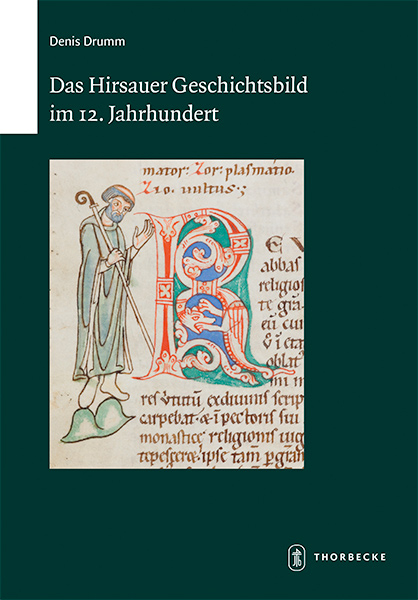 Denis Drumm
Das Hirsauer Geschichtsbild
im 12. Jahrhundert
mator: Zor: plasmatio.
Zio. uultus;
abbas
religios
te gra
eu cui
oblat
mi in
res ututu exdiuinis scrip
carpebat. & i pectoris sui
monastice religionis uig
tepescere. ipse tam p gran
THORBECKE